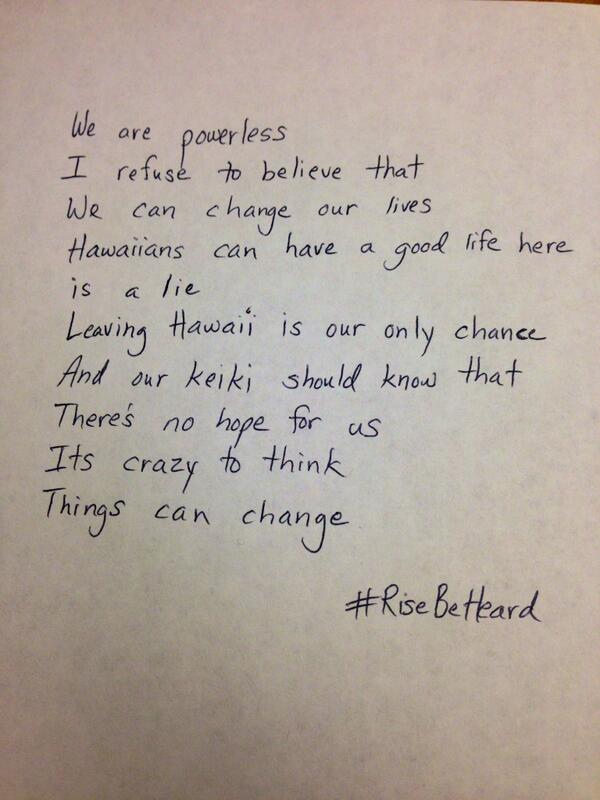 We are powerless
I refuse to believe that
We can change our lives
Hawaiians can have a good life here
is a lie
Leaving Hawaiʻi is our only chance
And our keiki should know that
There's no hope for us
Its crazy to think
Things can change
#RiseBeHeard